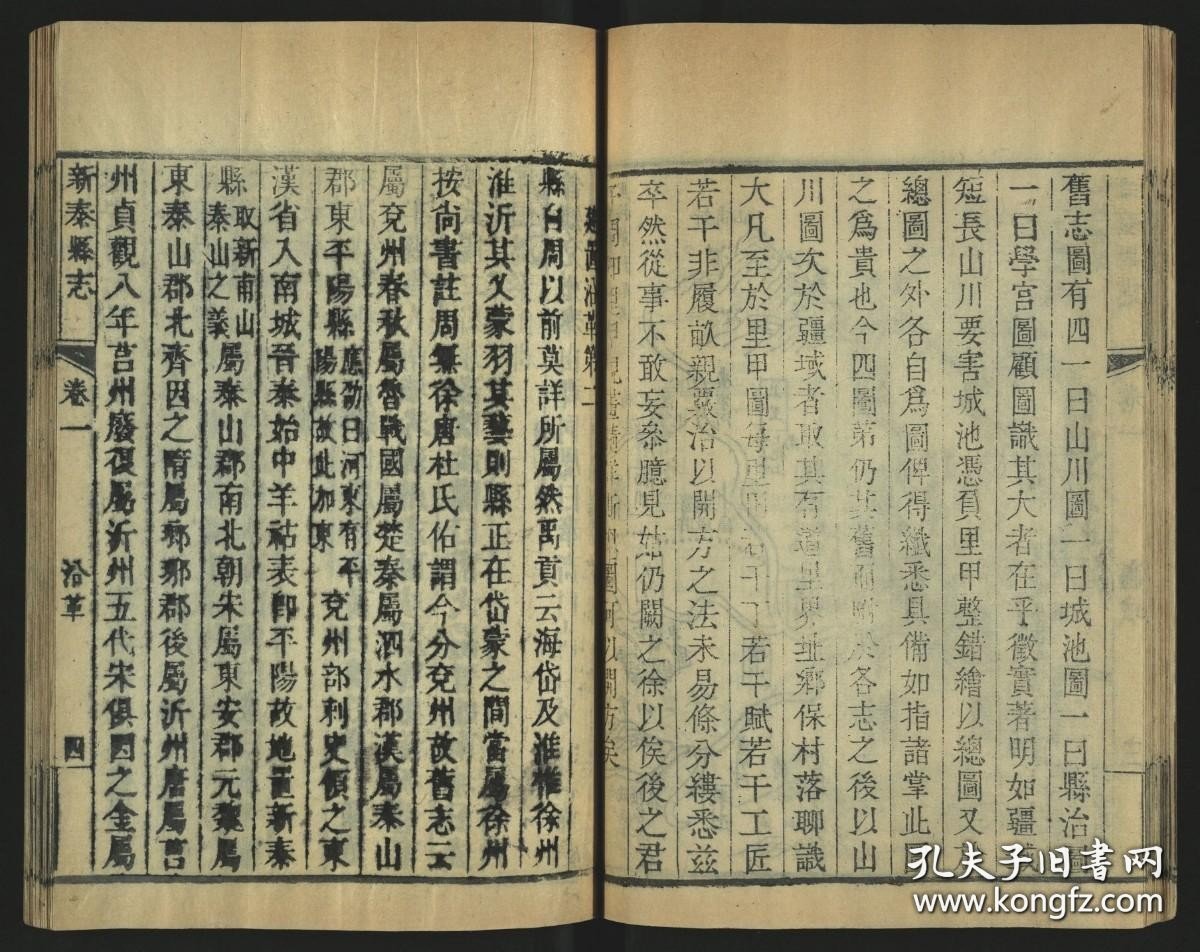 舊志圖有四一曰山川圖一曰城池圖一曰縣治圖
一曰學宮圖顧圖識其大者在乎徵實著明如疆域
短長山川要害城池憑負里甲整錯繪以總圖又
總圖之外各自爲圖俾得纖悉具備如指諸掌此圖
之爲貴也今四圖第仍其舊而於各志之後以山
川圖次於疆域者取其有道里界址鄉保村落聊識
大凡至於里甲圖每里若干丁若干賦若干工匠
若干非履畝親覈治以開方之法未易條分縷悉茲
卒然從事不敢妄參臆見姑仍闕之徐以俟後之君
建置沿革第二
縣自周以前莫詳所屬然禹貢云海岱及淮惟徐州
淮沂其乂蒙羽其藝則縣正在岱蒙之間當屬徐州
按尚書註周無徐唐杜氏佑謂今分兗州故舊志云
屬兗州春秋屬魯戰國屬楚秦屬泗水郡漢屬泰山
郡東平陽縣應劭曰河東有平陽縣故此加東兗州部刺史領之東
漢省入南城晉泰始中羊祜表卽平陽故地置新泰
縣取新甫山泰山之義屬泰山郡南北朝宋屬東安郡元魏屬
東泰山郡北齊因之隋屬琅琊郡後屬沂州唐屬莒
州貞觀八年莒州廢復屬沂州五代宋俱因之金屬
新泰縣志
卷一
沿革
四
孔夫子旧书网
www.kongfz.com